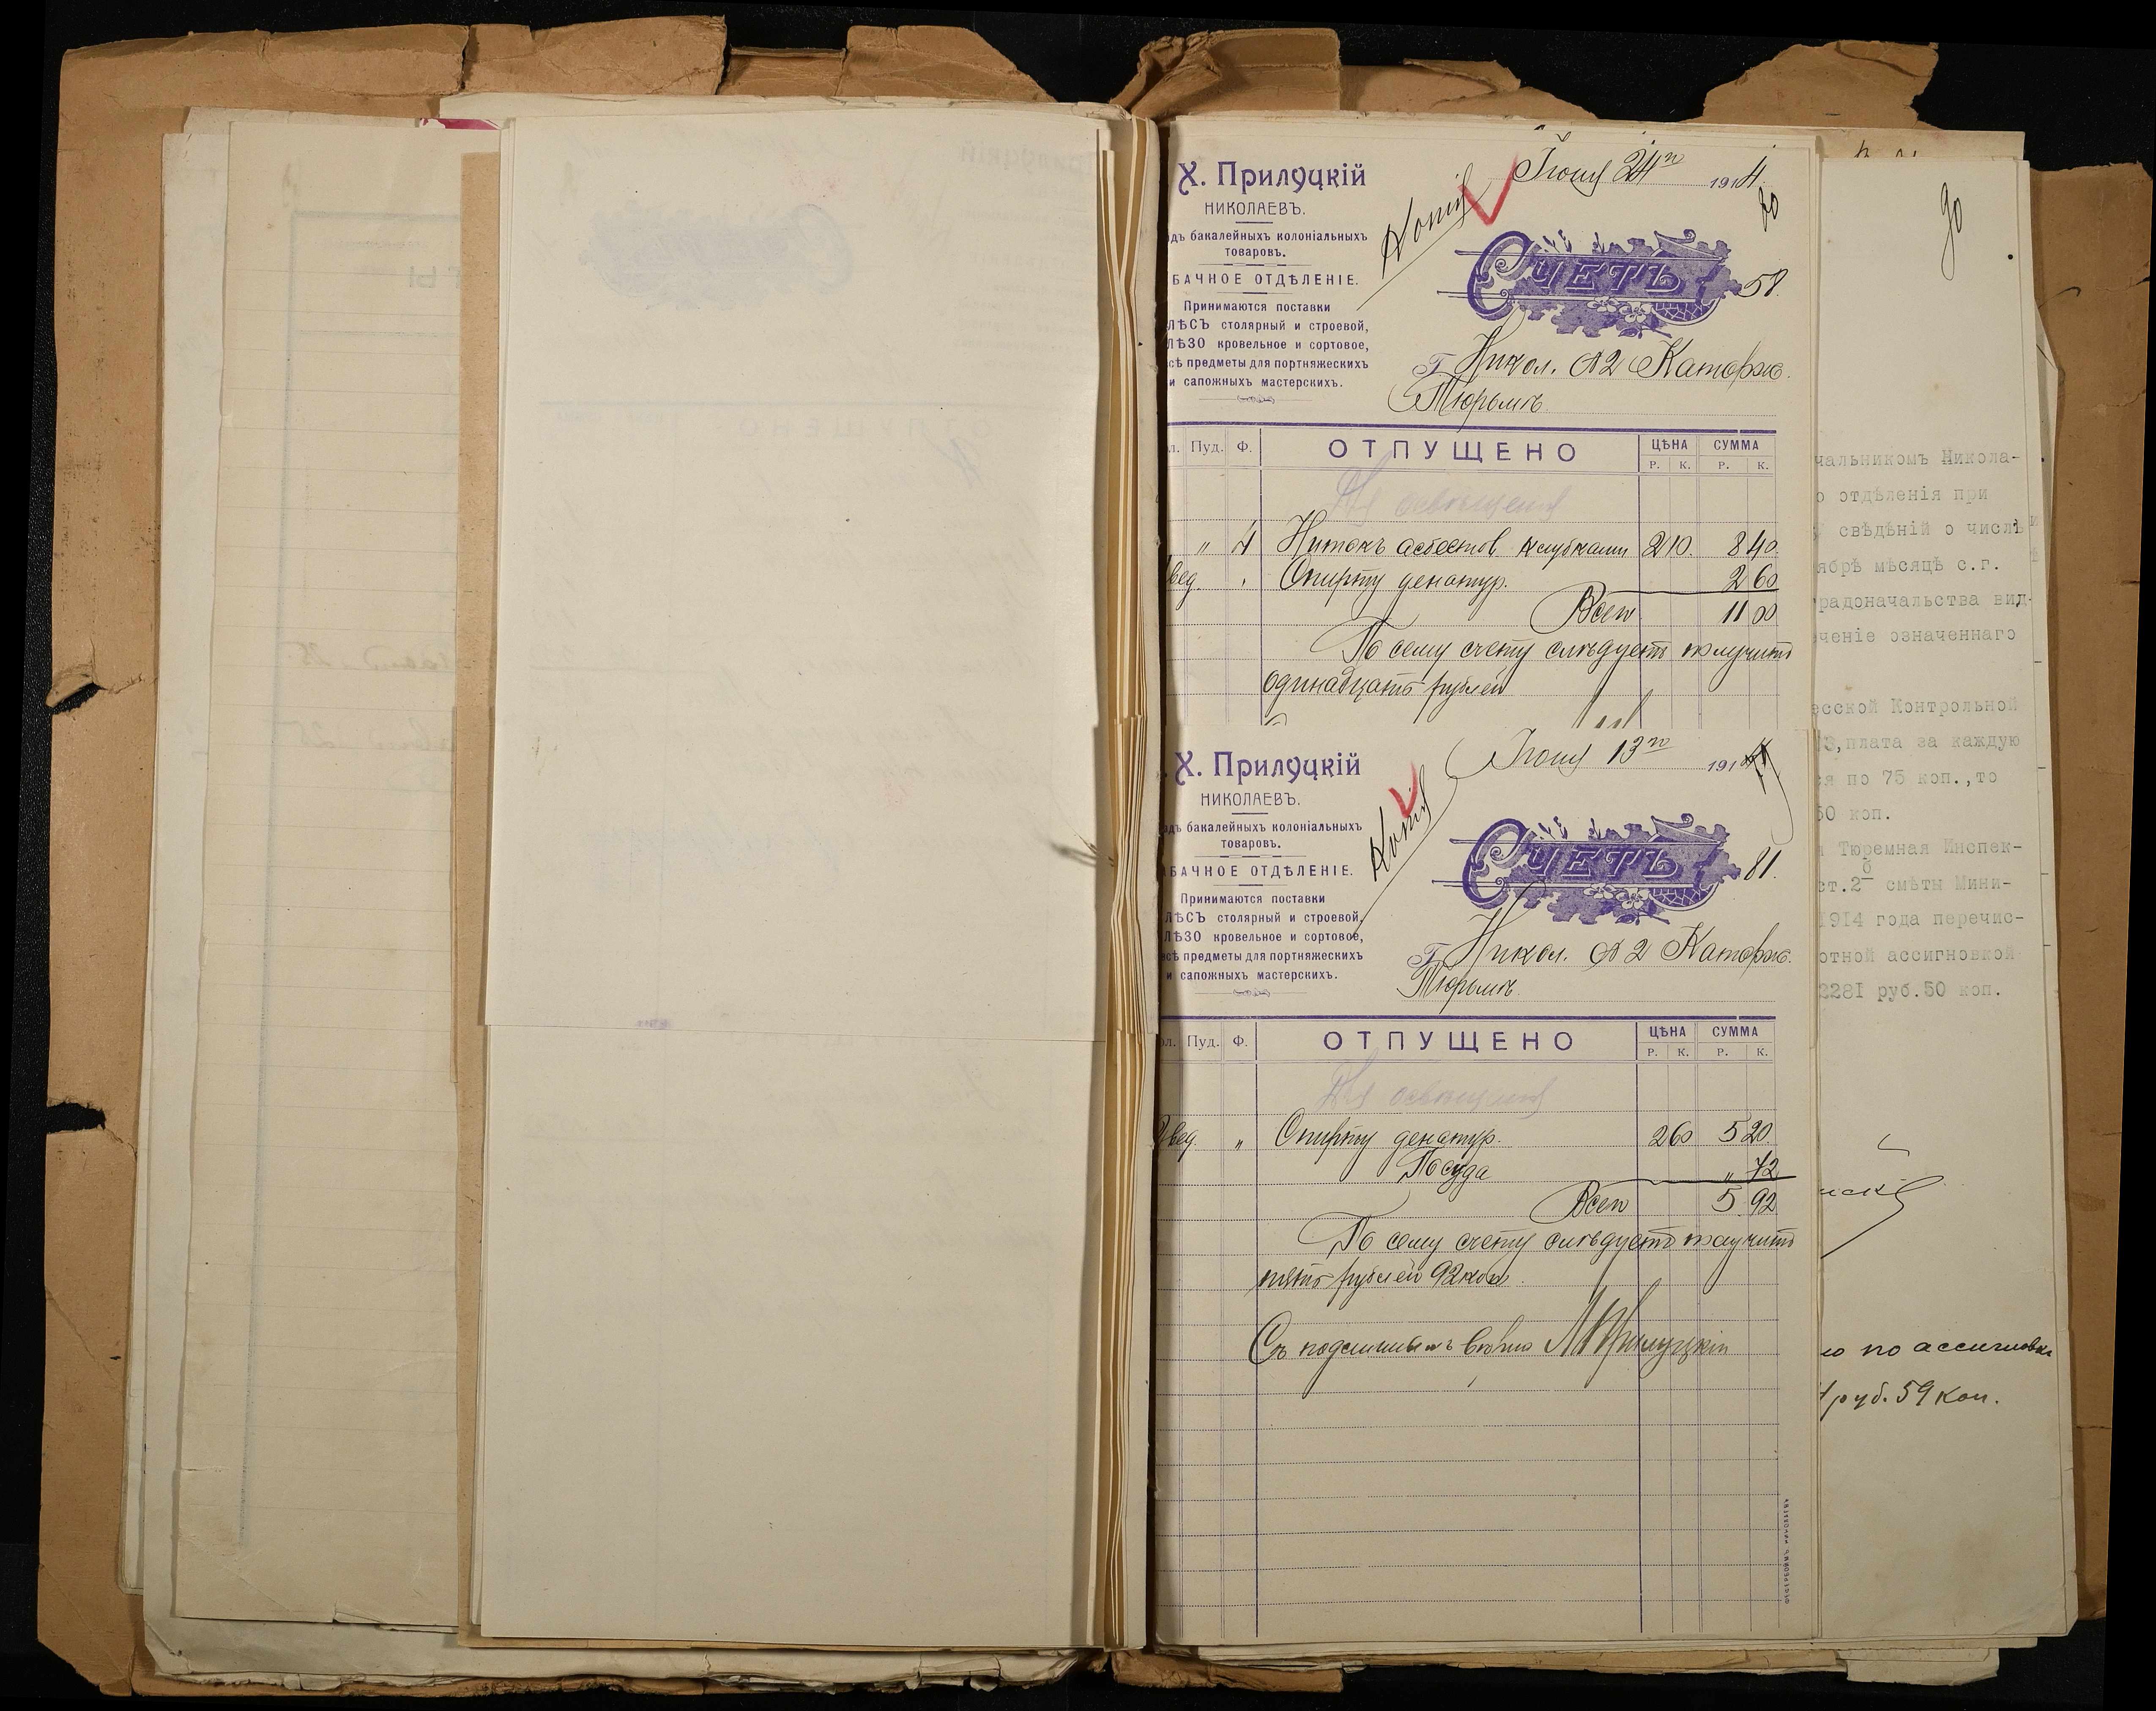 Х. Прилуцкій
НИКОЛАЕВЪ.
адъ бакалейныхъ колоніальныхъ
товаровъ.
БАЧНОЕ ОТДѢЛЕНІЕ.
Принимаются поставки
ЛѢСЪ столярный и строевой,
ЛѢЗО кровельное и сортовое,
сѣ предметы для портняжескихъ
и сапожныхъ мастерскихъ.
Копія
24го 1914.
80
СЧЕТЪ
58.
Г. Никол. 2 Каторж.
Тюрьмѣ
Пуд. Ф. ОТПУЩЕНО ЦѢНА СУММА
Р. К. Р. К.
Для освѣщенія
" 4 Нитокъ асбестов. клубками 2 10 8 40
вед. Спирту денатур. 2 60
Всего 11 00
По сему счету слѣдуетъ получить
одинадцать рублей
Х. Прилуцкій
НИКОЛАЕВЪ.
адъ бакалейныхъ колоніальныхъ
товаровъ.
БАЧНОЕ ОТДѢЛЕНІЕ.
Принимаются поставки
ЛѢСЪ столярный и строевой,
ЛѢЗО кровельное и сортовое,
всѣ предметы для портняжескихъ
и сапожныхъ мастерскихъ.
Копія
13го 191
СЧЕТЪ
81.
Г. Никол. 2 Каторж.
Тюрьмѣ
Пуд. Ф. ОТПУЩЕНО ЦѢНА СУММА
Р. К. Р. К.
Для освѣщенія
2 вед. " Спирту денатур. 2 60 5 20
Посуда " 72
Всего 5 92
По сему счету слѣдуетъ получить
пять рублей 92 коп.
Съ подлиннымъ вѣрно Прилуцкій
90
чальникомъ Никола-
о отдѣленія при
свѣдѣній о числѣ
ябрѣ мѣсяцѣ с.г.
радоначальства вид-
ченіе означеннаго
есской Контрольной
3, плата за каждую
ся по 75 коп., то
50 коп.
Тюремная Инспек-
ст.2б смѣты Мини-
1914 года перечис-
отной ассигновкой
2281 руб.50 коп.
по ассигновкѣ
руб. 59 коп.